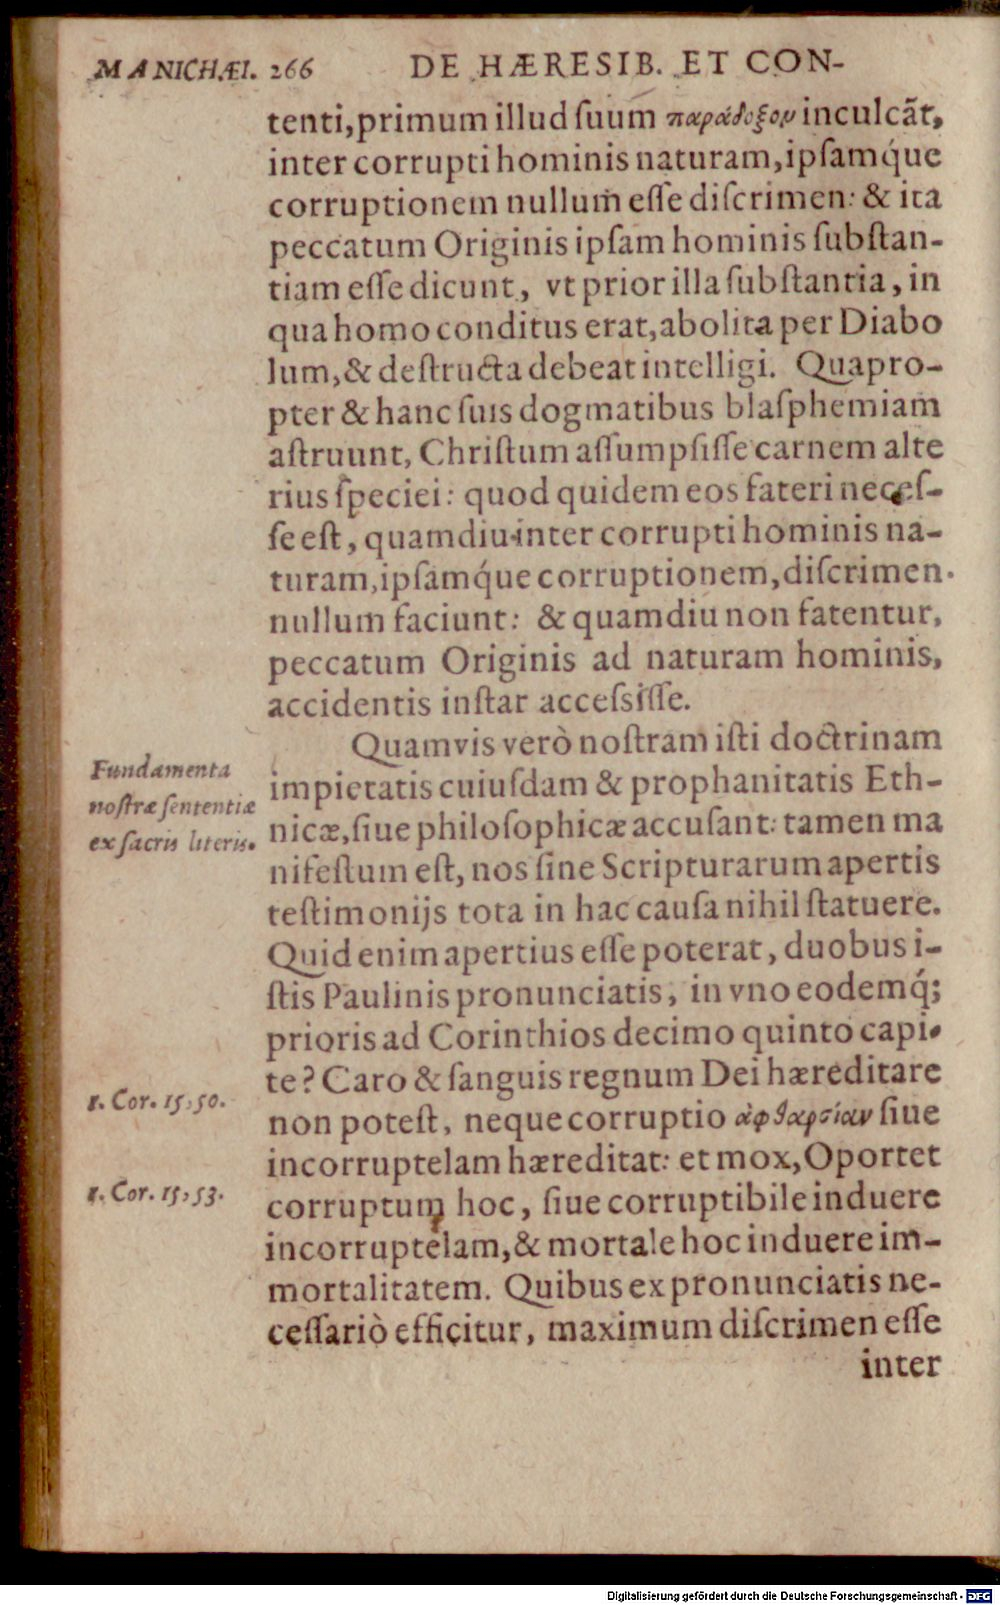 MANICHÆI. 266 DE HÆRESIB. ET CON-
tenti, primum illud ſuum παράδοξον inculcãt,
inter corrupti hominis naturam, ipſamq́ue
corruptionem nullum eſſe diſcrimen: & ita
peccatum Originis ipſam hominis ſubſtan-
tiam eſſe dicunt, vt prior illa ſubſtantia, in
qua homo conditus erat, abolita per Diabo
lum, & deſtructa debeat intelligi. Quapro-
pter & hanc ſuis dogmatibus blaſphemiam
aſtruunt, Chriſtum aſſumpſiſſe carnem alte
rius ſpeciei: quod quidem eos fateri neceſ-
ſe eſt, quamdiu inter corrupti hominis na-
turam, ipſamq́ue corruptionem, diſcrimen
nullum faciunt: & quamdiu non fatentur,
peccatum Originis ad naturam hominis,
accidentis inſtar acceſsiſſe.
Quamvis verò noſtram iſti doctrinam
Fundamenta
noſtræ ſententiæ
ex ſacris literis.
impietatis cuiuſdam & prophanitatis Eth-
nicæ, ſiue philoſophicæ accuſant: tamen ma
nifeſtum eſt, nos ſine Scripturarum apertis
teſtimonijs tota in hac cauſa nihil ſtatuere.
Quid enim apertius eſſe poterat, duobus i-
ſtis Paulinis pronunciatis, in vno eodemq́;
prioris ad Corinthios decimo quinto capi-
te? Caro & ſanguis regnum Dei hæreditare
1. Cor. 15, 50.
non poteſt, neque corruptio ἀφθαρσίαν ſiue
incorruptelam hæreditat: et mox, Oportet
1. Cor. 15, 53.
corruptum hoc, ſiue corruptibile induere
incorruptelam, & mortale hoc induere im-
mortalitatem. Quibus ex pronunciatis ne-
ceſſariò efficitur, maximum diſcrimen eſſe
inter
Digitalisierung gefördert durch die Deutsche Forschungsgemeinschaft - DFG